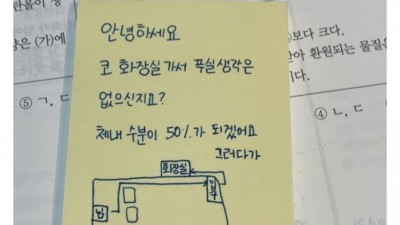 안녕하세요
코 화장실 가서 푸실 생각은
없으신지요?
체내 수분이 50%가 되겠어요
그러다가
화장실
입구
남
은 (가)에
보다 크다.
아 환원되는 물질은
이다.
⑤ ㄱ, ㄷ
④ ㄴ, ㄷ